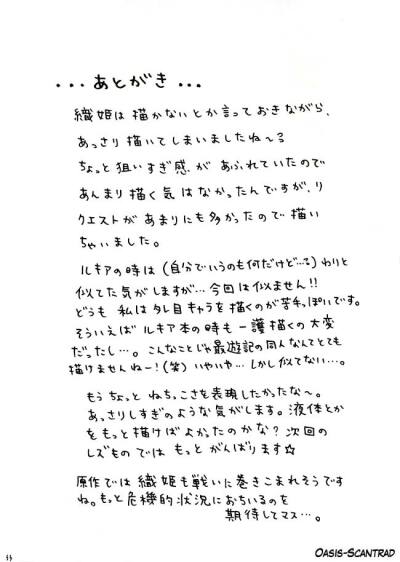 ・・・あとがき・・・
織姫は描かないとか言っておきながら、
あっさり描いてしまいましたね〜る
ちょっと狙いすぎ感があふれていたので
あんまり描く気はなかったんですが、リ
クエストがあまりにも多かったので描い
ちゃいました。
ルキアの時は(自分でいうのも何だけど…る)わりと
似てた気がしますが…今回は似ません!!
どうも 私はタレ目キャラを描くのが苦手っぽいです。
そういえば ルキア本の時も 一護描くの大変
だったし…。こんなことじゃ最遊記の同人なんてとても
描けませんねー!(笑)いやいや…しかし似てない…。
もう ちょっと ねちっこさを表現したかったな〜。
あっさりしすぎのような気がします。液体とか
をもっと描けばよかったのかな?次回の
レズものでは もっと がんばります☆
原作では織姫も戦いに巻きこまれそうです
ね。もっと危機的状況におちいるのを
期待してマス…。
Oasis-Scantrad